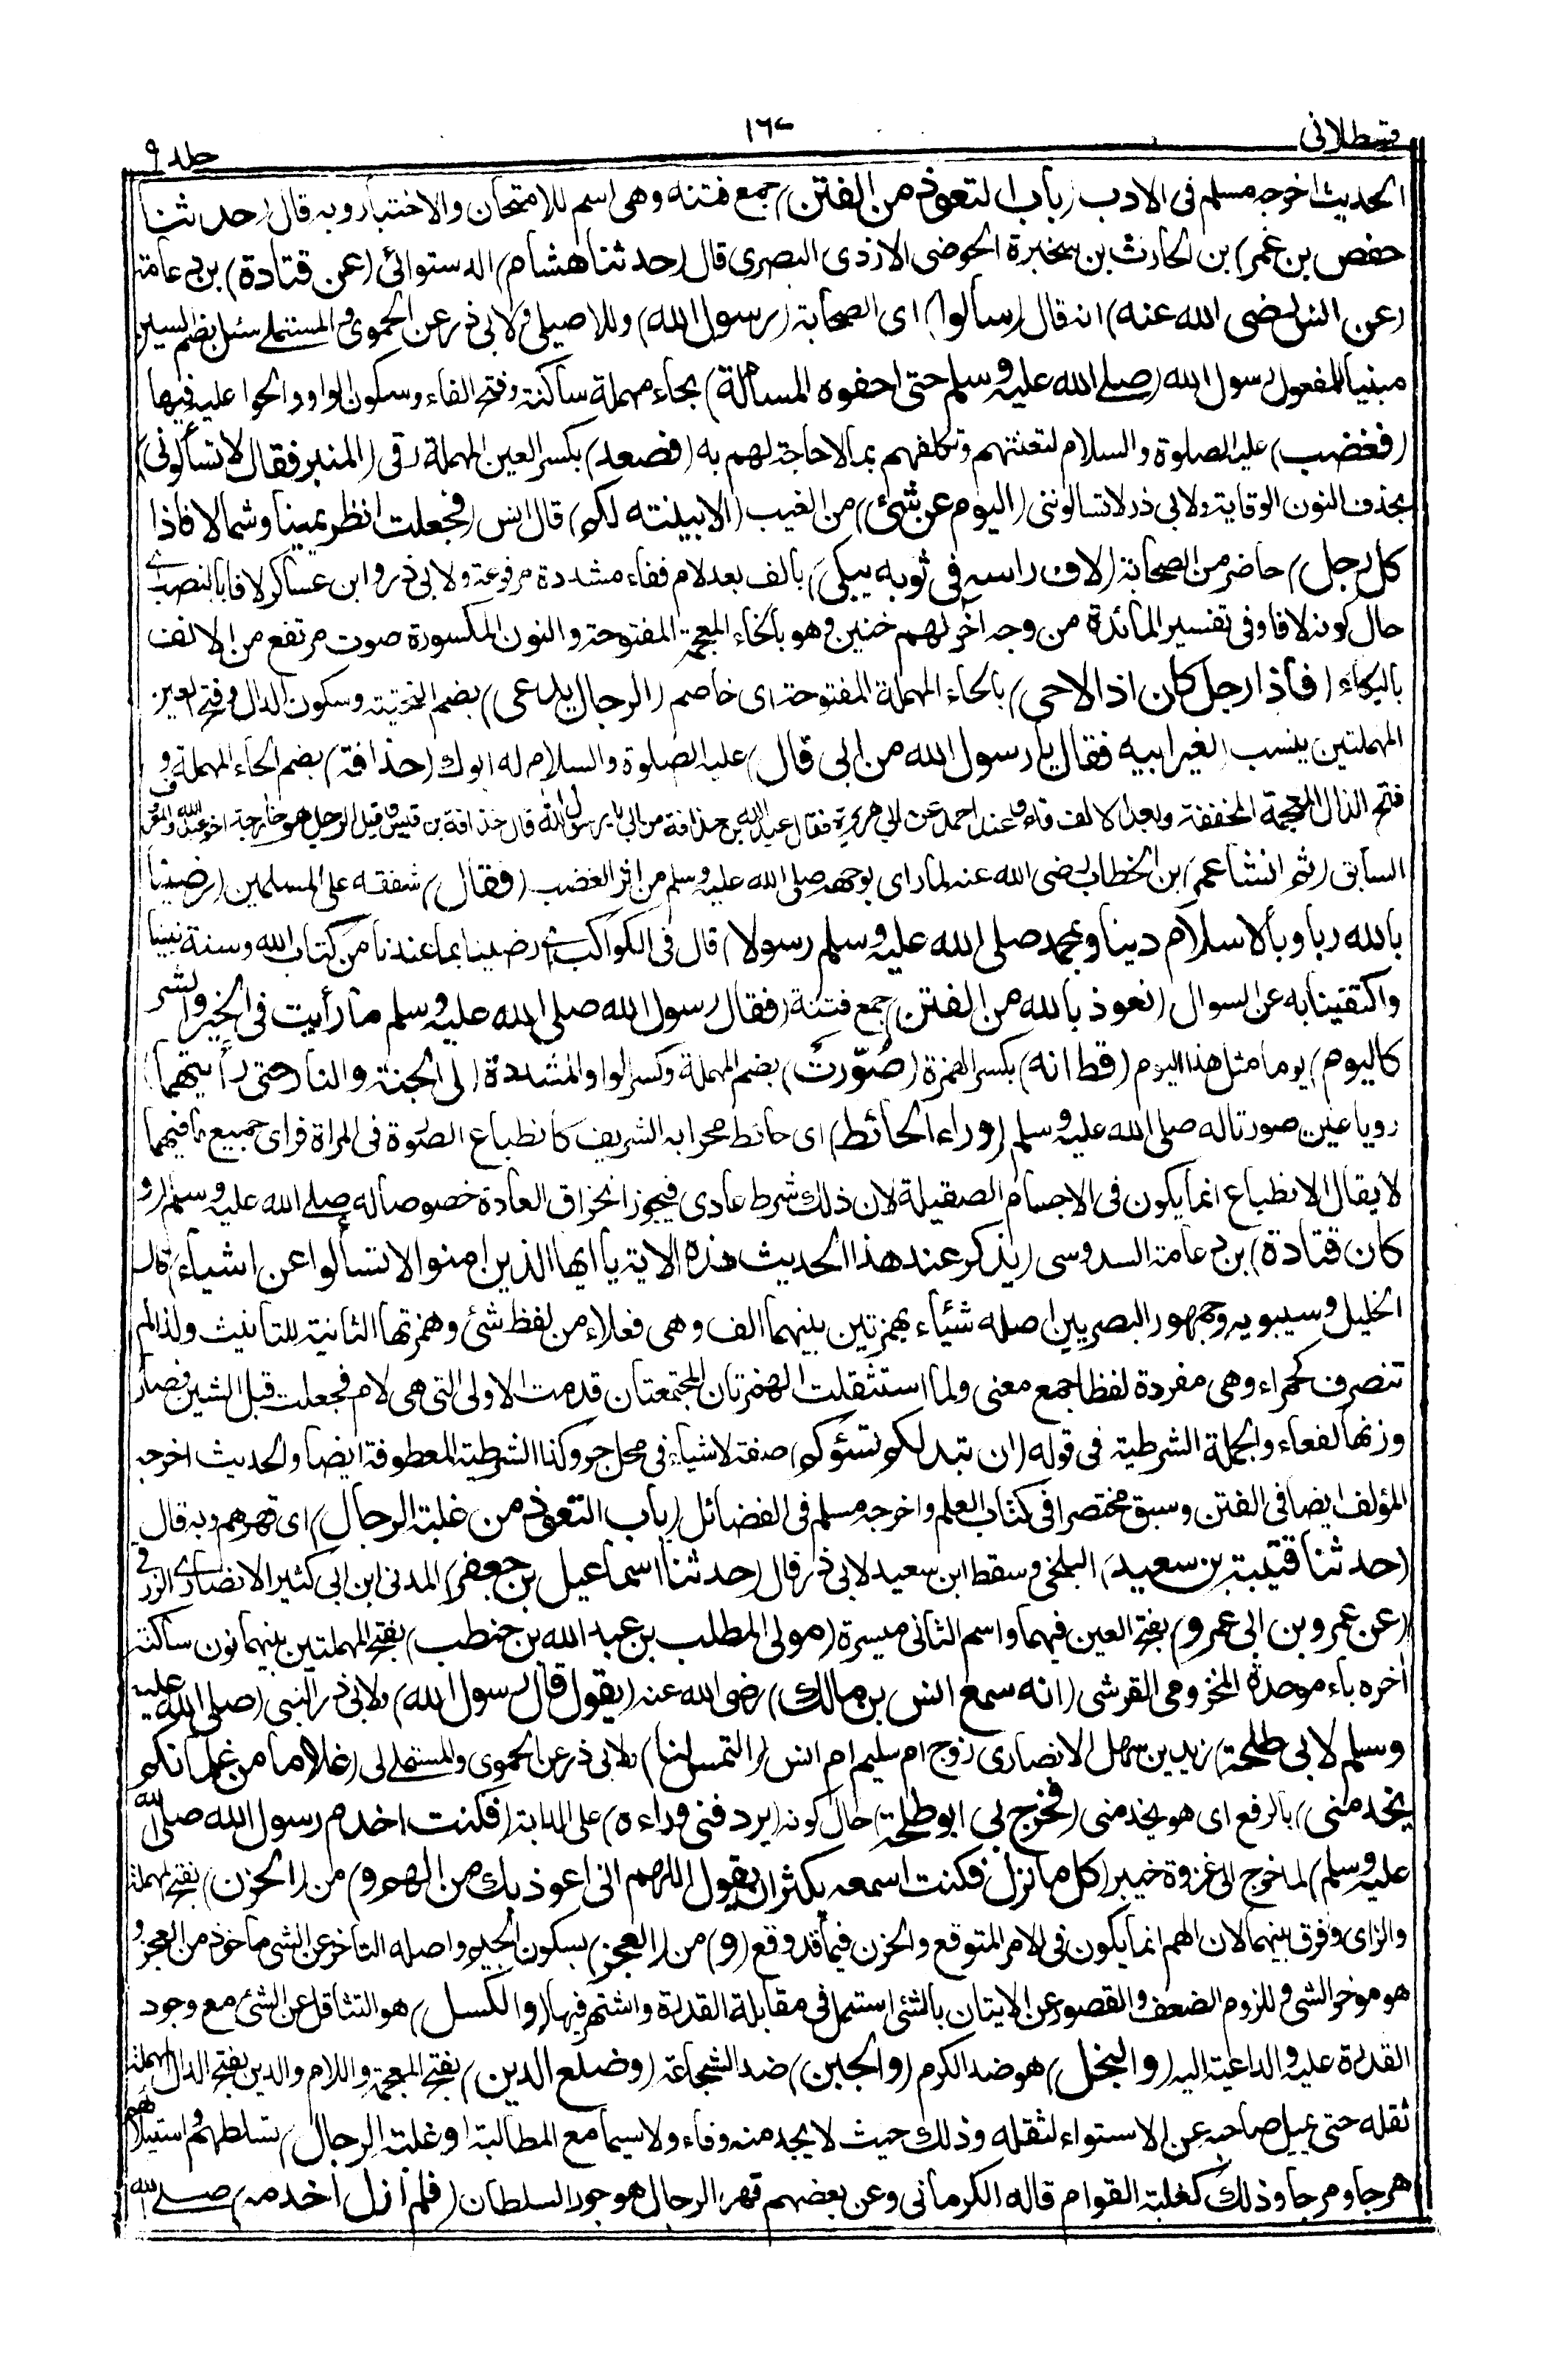 قسطلانی
١٦٧
جلد ٩
الحدیث اخرجہ مسلم فی الادب (باب التعوذ من الفتن) جمع فتنہ وھی اسم للامتحان والاختبار وبہ قال (حدثنا
حفص بن عمر) بن الحارث بن سخبرة الحوضی الازدی البصری قال (حدثنا ھشام) الدستوائی (عن قتادة) بن دعامة
(عن انس رضی اللہ عنہ) انہ قال (سألوا) ای الصحابة (رسول اللہ) وللاصیلی ولابی ذر عن الحموی والمستملے سئل بضم السین
مبنیا للمفعول رسول اللہ (صلے اللہ علیہ وسلم حتی احفوہ المسألة) بحاء مھملة ساکنة وفتح الفاء وسکون الواو والحوا علیہ فیھا
(فغضب) علیہ الصلوة والسلام لتعنتھم وتکلفھم بما لاحاجة لھم بہ (فصعد) بکسر العین المھملة رقی (المنبر فقال لا تسألونی)
بحذف النون الوقایة ولابی ذر لا تسألوننی (الیوم عن شیٔ) من الغیب (الا بینتہ لکم) قال انس (فجعلت انظر یمینا وشمالا فاذا
کل رجل) حاضر من الصحابة (لاف راسہ فی ثوبہ یبکی) بالف بعد لام ففاء مشددة مرفوعة ولابی ذر وابن عساکر لافا بالنصب
حال کونہ لافا وفی تفسیر المائدة من وجہ آخر لھم خنین وھو بالخاء المعجمة المفتوحة والنون المکسورة صوت مرتفع من الانف
بالبکاء (فاذا رجل کان اذا لاحی) بالحاء المھملة المفتوحة ای خاصم (الرجال یدعی) بضم التحتیة وسکون الدال وفتح العین
المھملتین ینسب (لغیر ابیہ فقال یا رسول اللہ من ابی قال) علیہ الصلوة والسلام لہ ابوك (حذافة) بضم الحاء المھملة و
فتح الذال المعجمة المخففة وبعد الالف فاء وعند احمد عن ابی ھریرة فقال عبد اللہ بن حذافة من ابی یا رسول اللہ قال حذافة بن قیس وقیل الرجل ھو خارجة اخو عبد اللہ والمعروف
السابق (ثم انشأ عمر) بن الخطاب رضی اللہ عنہ لما رای بوجھہ صلی اللہ علیہ وسلم من اثر الغضب (فقال) شفقة علی المسلمین (رضینا
باللہ ربا وبالاسلام دینا وبمحمد صلی اللہ علیہ وسلم رسولا) قال فی الکواکب ای رضینا بما عندنا من کتاب اللہ وسنة نبینا
واکتفینا بہ عن السوال (نعوذ باللہ من الفتن) جمع فتنة (فقال رسول اللہ صلی اللہ علیہ وسلم ما رأیت فی الخیر والشر
کالیوم) یوما مثل ھذا الیوم (قط انہ) بکسر الھمزة (صُوِّرت) بضم المھملة وکسر الواو المشددة (لی الجنة والنار حتی رأیتھما)
رویا عین صورتا لہ صلی اللہ علیہ وسلم (وراء الحائط) ای حائط محرابہ الشریف کانطباع الصورة فی المراة فرای جمیع ما فیھما
لا یقال الانطباع انما یکون فی الاجسام الصقیلة لان ذلك شرط عادی فیجوز انخراق العادة خصوصا لہ صلے اللہ علیہ وسلم (و
کان قتادة) بن دعامة السدوسی (یذکر عند ھذا الحدیث ھذہ الایة یا ایھا الذین امنوا لا تسألوا عن اشیاء) قال
الخلیل وسیبویہ وجمھور البصریین اصلہ شیئاء بھمزتین بینھما الف وھی فعلاء من لفظ شیٔ وھمزتھا الثانیة للتانیث ولذا لم
تنصرف کحمراء وھی مفردة لفظا جمع معنی ولما استثقلت الھمزتان المجتمعتان قدمت الاولی التی ھی لام فجعلت قبل الشین فصار
وزنھا لفعاء والجملة الشرطیة فی قولہ (ان تبد لکم تسؤکم) صفة لاشیاء فی محل جر وکذا الشرطیة المعطوفة ایضا والحدیث اخرجہ
المؤلف ایضا فی الفتن وسبق مختصرا فی کتاب العلم واخرجہ مسلم فی الفضائل (باب التعوذ من غلبة الرجال) ای قھرھم وبہ قال
(حدثنا قتیبة بن سعید) البلخی وسقط ابن سعید لابی ذر قال (حدثنا اسماعیل بن جعفر) المدنی ابن ابی کثیر الانصاری الزرقی
(عن عمرو بن ابی عمرو) بفتح العین فیھما واسم الثانی میسرة (مولی المطلب بن عبد اللہ بن حنطب) بفتح المھملتین بینھما نون ساکنة
اخرہ باء موحدة المخزومی القرشی (انہ سمع انس بن مالك) رضی اللہ عنہ (یقول قال رسول اللہ) ولابی ذر النبی (صلی اللہ علیہ
وسلم لابی طلحة) زید بن سھل الانصاری زوج ام سلیم ام انس (التمس لنا) ولابی ذر عن الحموی والمستملے لی (غلاما من غلمانکم
یخدمنی) بالرفع ای ھو یخدمنی (فخرج بی ابو طلحة) حال کونہ (یردفنی وراءہ) علی الدابة (فکنت اخدم رسول اللہ صلی اللہ
علیہ وسلم) لما خرج الی غزوة خیبر (کلما نزل فکنت اسمعہ یکثر ان یقول اللھم انی اعوذ بك من الھم و) من (الحزن) بفتح المھملة
والزای وفرق بینھما لان الھم انما یکون فی الامر المتوقع والحزن فیما قد وقع (و) من (العجز) بسکون الجیم واصلہ التاخر عن الشی ماخوذ من العجز و
ھو موخر الشی وللزوم الضعف والقصور عن الایتان بالشئی استعمل فی مقابلة القدرة واشتھر فیھا (والکسل) ھو التثاقل عن الشیٔ مع وجود
القدرة علیہ والداعیة الیہ (والبخل) ھو ضد الکرم (والجبن) ضد الشجاعة (وضلع الدین) بفتح المعجمة واللام والدین بفتح الدال المھملة
ثقلہ حتی یمیل صاحبہ عن الاستواء لثقلہ وذلك حیث لا یجد منہ وفاء ولا سیما مع المطالبة (وغلبة الرجال) تسلطھم واستیلاءھم
ھرجا ومرجا وذلك کغلبة القوام قالہ الکرمانی وعن بعضھم قھر الرجال ھو جور السلطان (فلم ازل اخدمہ) صلے اللہ